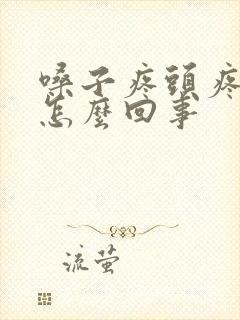 嗓子疼頭疼
怎麼回事
流萤